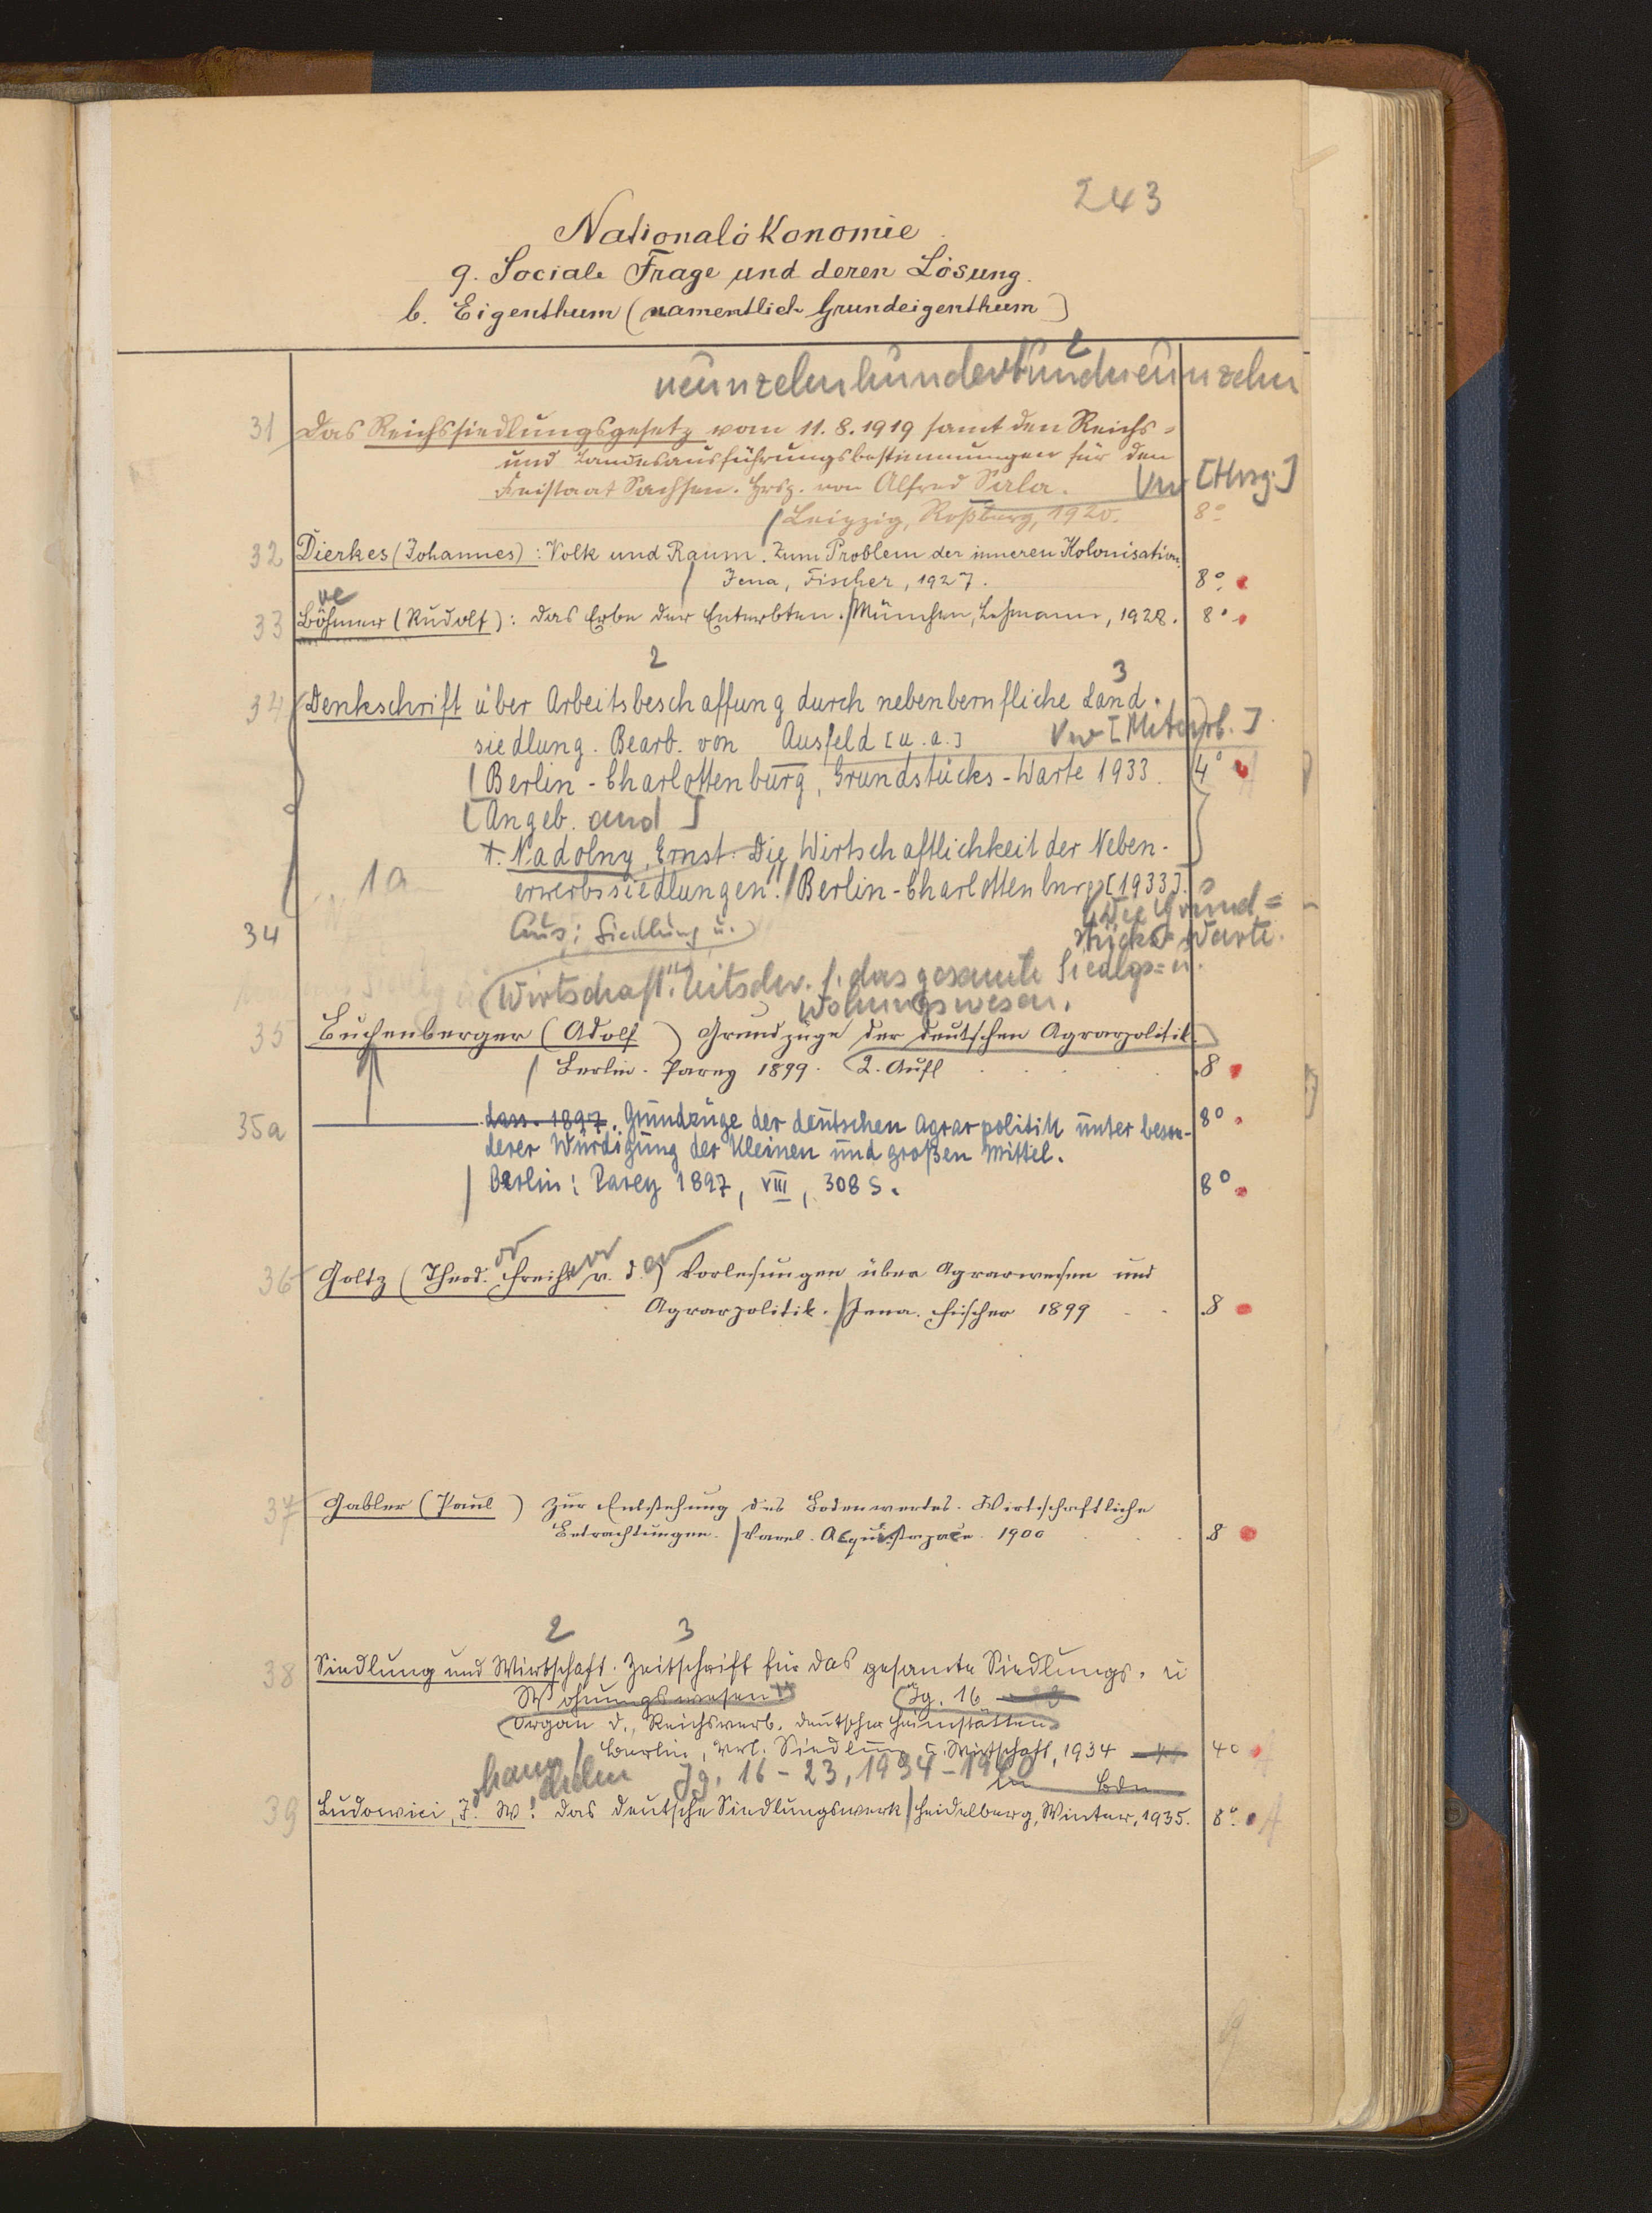 243
Nationalökonomie
9. Sociale Frage und deren Lösung.
b. Eigenthum (namentlich Grundeigenthum)
2
neunzehnhundertundneunzehn
31 Das Reichssiedlungsgesetz vom 11.8.1919 samt den Reichs-
und Landesausführungsbestimmungen für den
Freistaat Sachsen. Hrsg. von Alfred Sala. Vw [Hrsg.]
Leipzig, Roßberg, 1920. 8°
32 Dierkes (Johannes): Volk und Raum. Zum Problem der inneren Kolonisation.
Jena, Fischer, 1927. 8°
33 Böhmer (Rudolf): Das Erbe der Enterbten. / München, Lehmann, 1928. 8°
2 3
34 Denkschrift über Arbeitsbeschaffung durch nebenberufliche Land-
siedlung. Bearb. von Ausfeld [u.a.] Vw [Mitarb.]
/ Berlin-Charlottenburg, Grundstücks-Warte 1933. 4°
[Angeb. and]
1. Nadolny, Ernst: Die Wirtschaftlichkeit der Neben-
1a erwerbssiedlungen. / Berlin-Charlottenburg [1933].
Die Grund=
34 Aus: Siedlung u. stücks-Warte.
Wirtschaft. Zeitschr. f. das gesamte Siedlgs= u.
Wohnungswesen.
35 Buchenberger (Adolf) Grundzüge der deutschen Agrarpolitik.
/ Berlin. Parey 1899. 2. Aufl 8
35a dass. 1897. Grundzüge der deutschen Agrarpolitik unter beson- 8°
derer Würdigung der kleinen und großen Mittel.
/ Berlin: Parey 1897, VIII, 308 S. 8°
36 Goltz (Theod. Freih. v. d.) Vorlesungen über Agrarwesen und
Agrarpolitik. / Jena. Fischer 1899 8
37 Gabler (Paul) Zur Entstehung des Bodenwertes. Wirtschaftliche
Betrachtungen. / Varel. Acquistapace. 1900 8
2 3
38 Siedlung und Wirtschaft. Zeitschrift für das gesamte Siedlungs- u
Wohnungswesen Jg. 16
Organ d. Reichsverb. deutscher Heimstätten
/ Berlin, Verl. Siedlung u. Wirtschaft, 1934 4°
Jg. 16-23, 1934-1940
39 Ludowici, J. W.: Das deutsche Siedlungswerk / Heidelberg, Winter, 1935. 8°